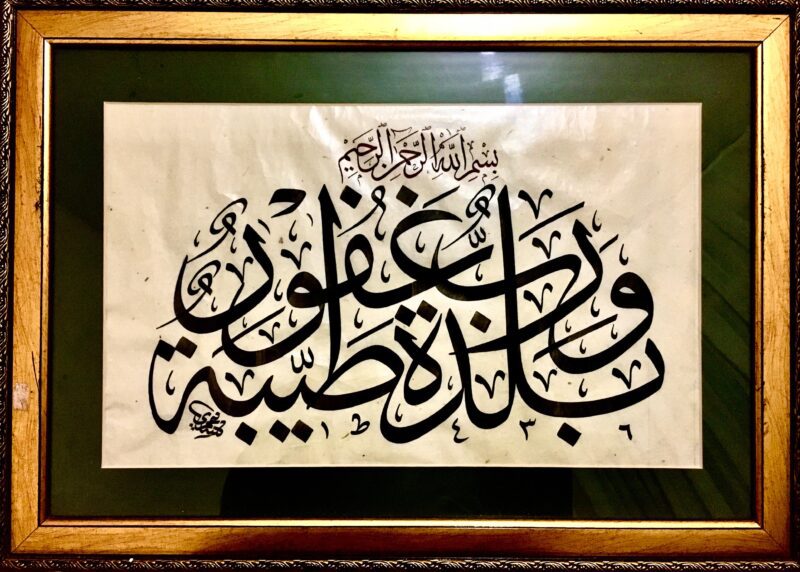 بِسْمِ اللهِ الرَّحْمٰنِ الرَّحِيمِ
بَلْدَةٌ طَيِّبَةٌ وَرَبٌّ غَفُورٌ
١٤٣٦